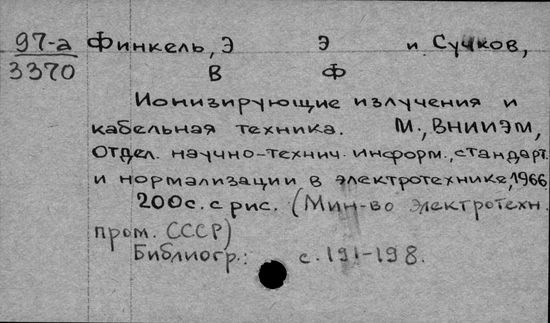 97-а Финкель, Э Э и Сучков,
3370 В Ф
Ионизирующие излучения и
кабельная техника. М., ВНИИЭМ,
Отдел. научно-технич. информ., стандарт.
и нормализации в электротехнике, 1966
200с. с рис. (Мин-во электротехн.
пром. СССР)
Библиогр.: с. 191-198.